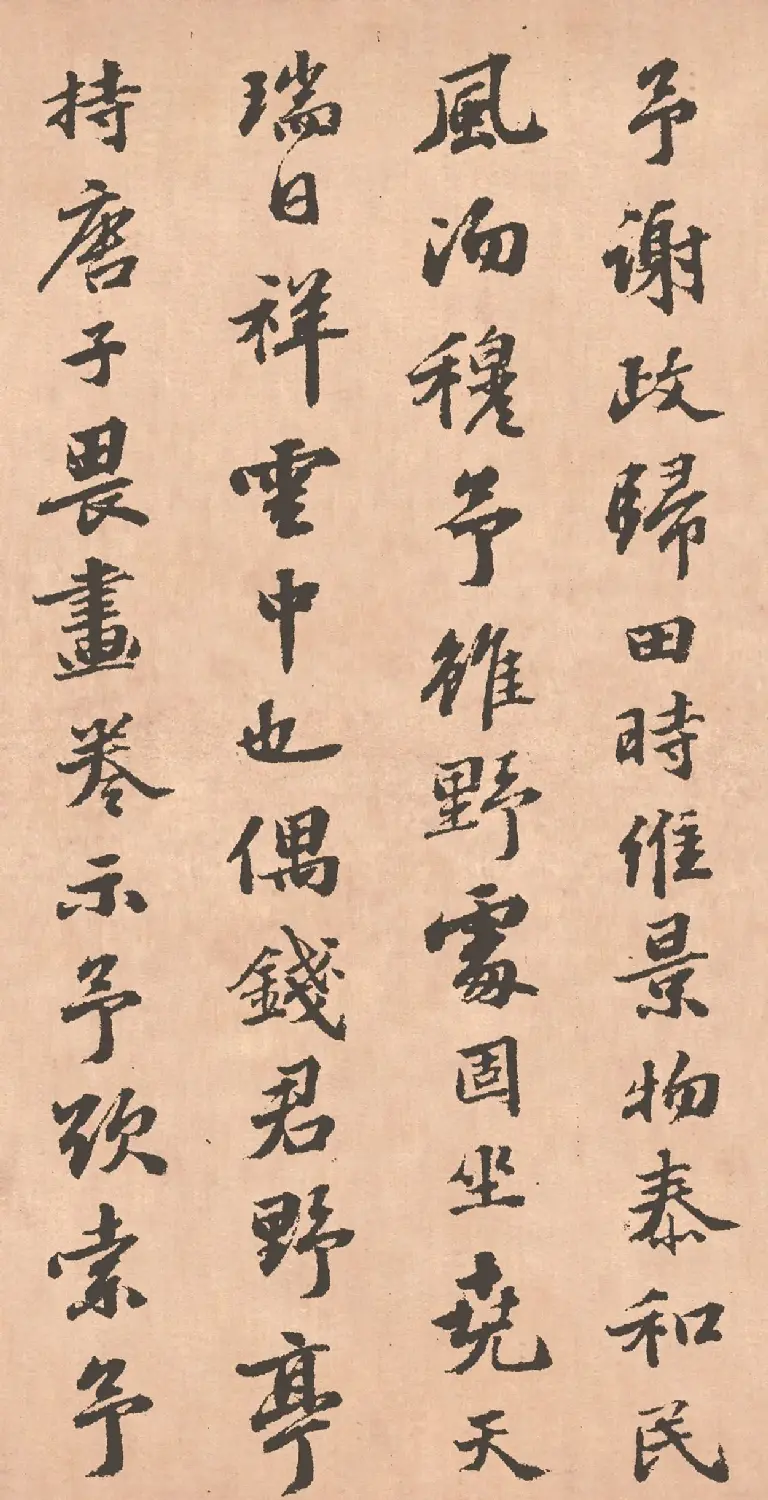 予謝政歸田時維景物泰和民
風沕穆予雖野處固坐堯天
瑞日祥雲中也偶錢君野亭
持唐子畏畫卷示予欣索予